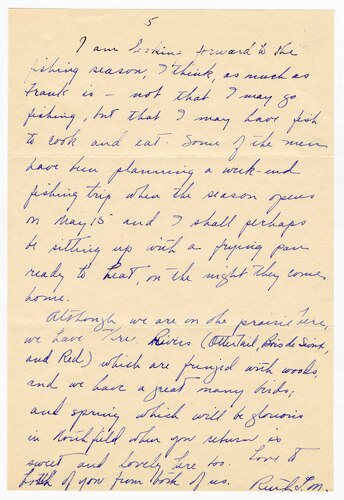 5
I am looking forward to the
fishing season, I think, as much as
Frank is – not that I may go
fishing, but that I may have fish
to cook and eat. Some of the men
have been planning a week-end
fishing trip when the season opens
on May 15 and I shall perhaps
be sitting up with a frying pan
ready to heat, on the night they come
home.
Although we are on the prairie here,
we have three Rivers (Ottertail, Bois de Sioux,
and Red) which are fringed with woods,
and we have a great many birds,
and spring which will be glorious
in Northfield when you return is
sweet and lovely here too. Love to
both of you from both of us.